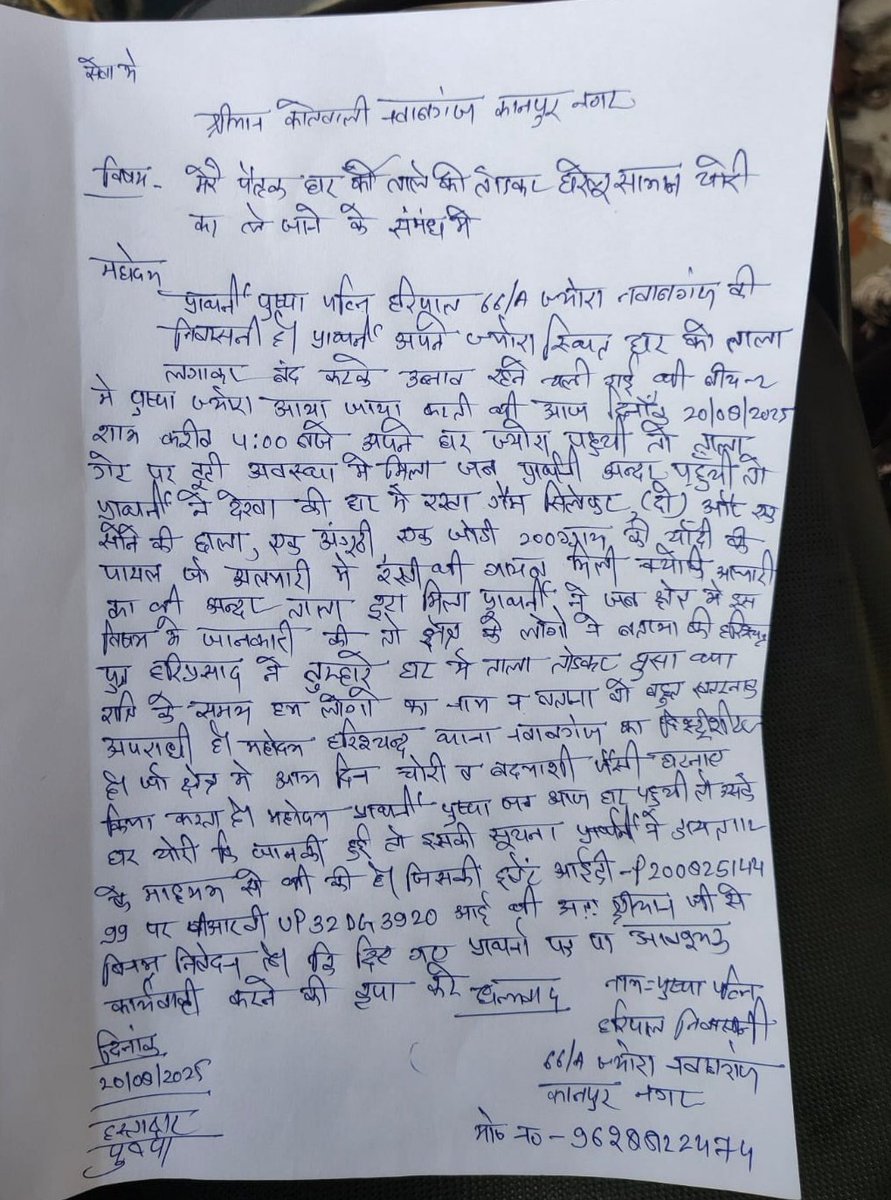 सेवा मे
श्रीमान कोतवाली नवाबगंज कानपुर नगर
विषय- मेरे पैतृक घर की ताले को तोडकर घरेलू सामान चोरी
कर ले जाने के संमंध मे
महोदय
प्रार्थनी पुष्पा पत्नि हरिपाल 66/A ज्योरा नवाबगंज की
निवासनी है। प्रार्थनी अपने ज्योरा स्थित घर को ताला
लगाकर बंद करके उन्नाव रहने चली गई थी बीच-२
मे पुष्पा ज्योरा आया जाया करती थी आज दिनाँक 20/08/2025
शाम करीब 4:00 बजे अपने घर ज्योरा पहुची तो ताला
गेट पर टूटी अवस्था मे मिला जब प्रार्थनी अन्दर पहुची तो
प्रार्थनी ने देखा की घर मे रखा गैस सिलेन्डर (दो) और एक
सोने की माला, एक अंगूठी एक जोडी 200ग्राम की चाँदी की
पायल जो अलमारी मे रखी थी गायब मिली क्योकि अलमारी
का भी अन्दर ताला टूटा मिला प्रार्थनी ने जब क्षेत्र मे इस
विषय मे जानकारी की तो क्षेत्र के लोगो ने बताया की हरिश्चन्द्र
पुत्र हरिप्रसाद ने तुम्हारे घर मे ताला तोडकर घुसा था
रात्रि के समय हम लोगो का नाम न बताना वो बहुत खतरनाक
अपराधी है। महोदय हरिश्चन्द्र थाना नवाबगंज का हिस्ट्रीशीटर
है। जो क्षेत्र मे आय दिन चोरी व बदमाशी जैसी घटनाए
किया करता है। महोदय प्रार्थनी पुष्पा जब आज घर पहुची तो उसके
घर चोरी कि जानकी हुई तो इसकी सूचना प्रार्थनी ने डायल112
के माध्यम से भी की है। जिसकी इवेंट आईडी -P200825144
99 पर पीआरवी UP32DG3920 आई थी अतः श्रीमान जी से
विनम्र निवेदन है। कि दिए गए प्रार्थना पत्र पर आवश्यक
कार्यवाही करने की कृपा करे धन्यवाद
नाम=पुष्पा पत्नि
हरिपाल निवासनी
66/A ज्योरा नवाबगंज
कानपुर नगर
मो० न०-9628822474
दिनांक
20/08/2025
हस्ताक्षर
पुष्पा